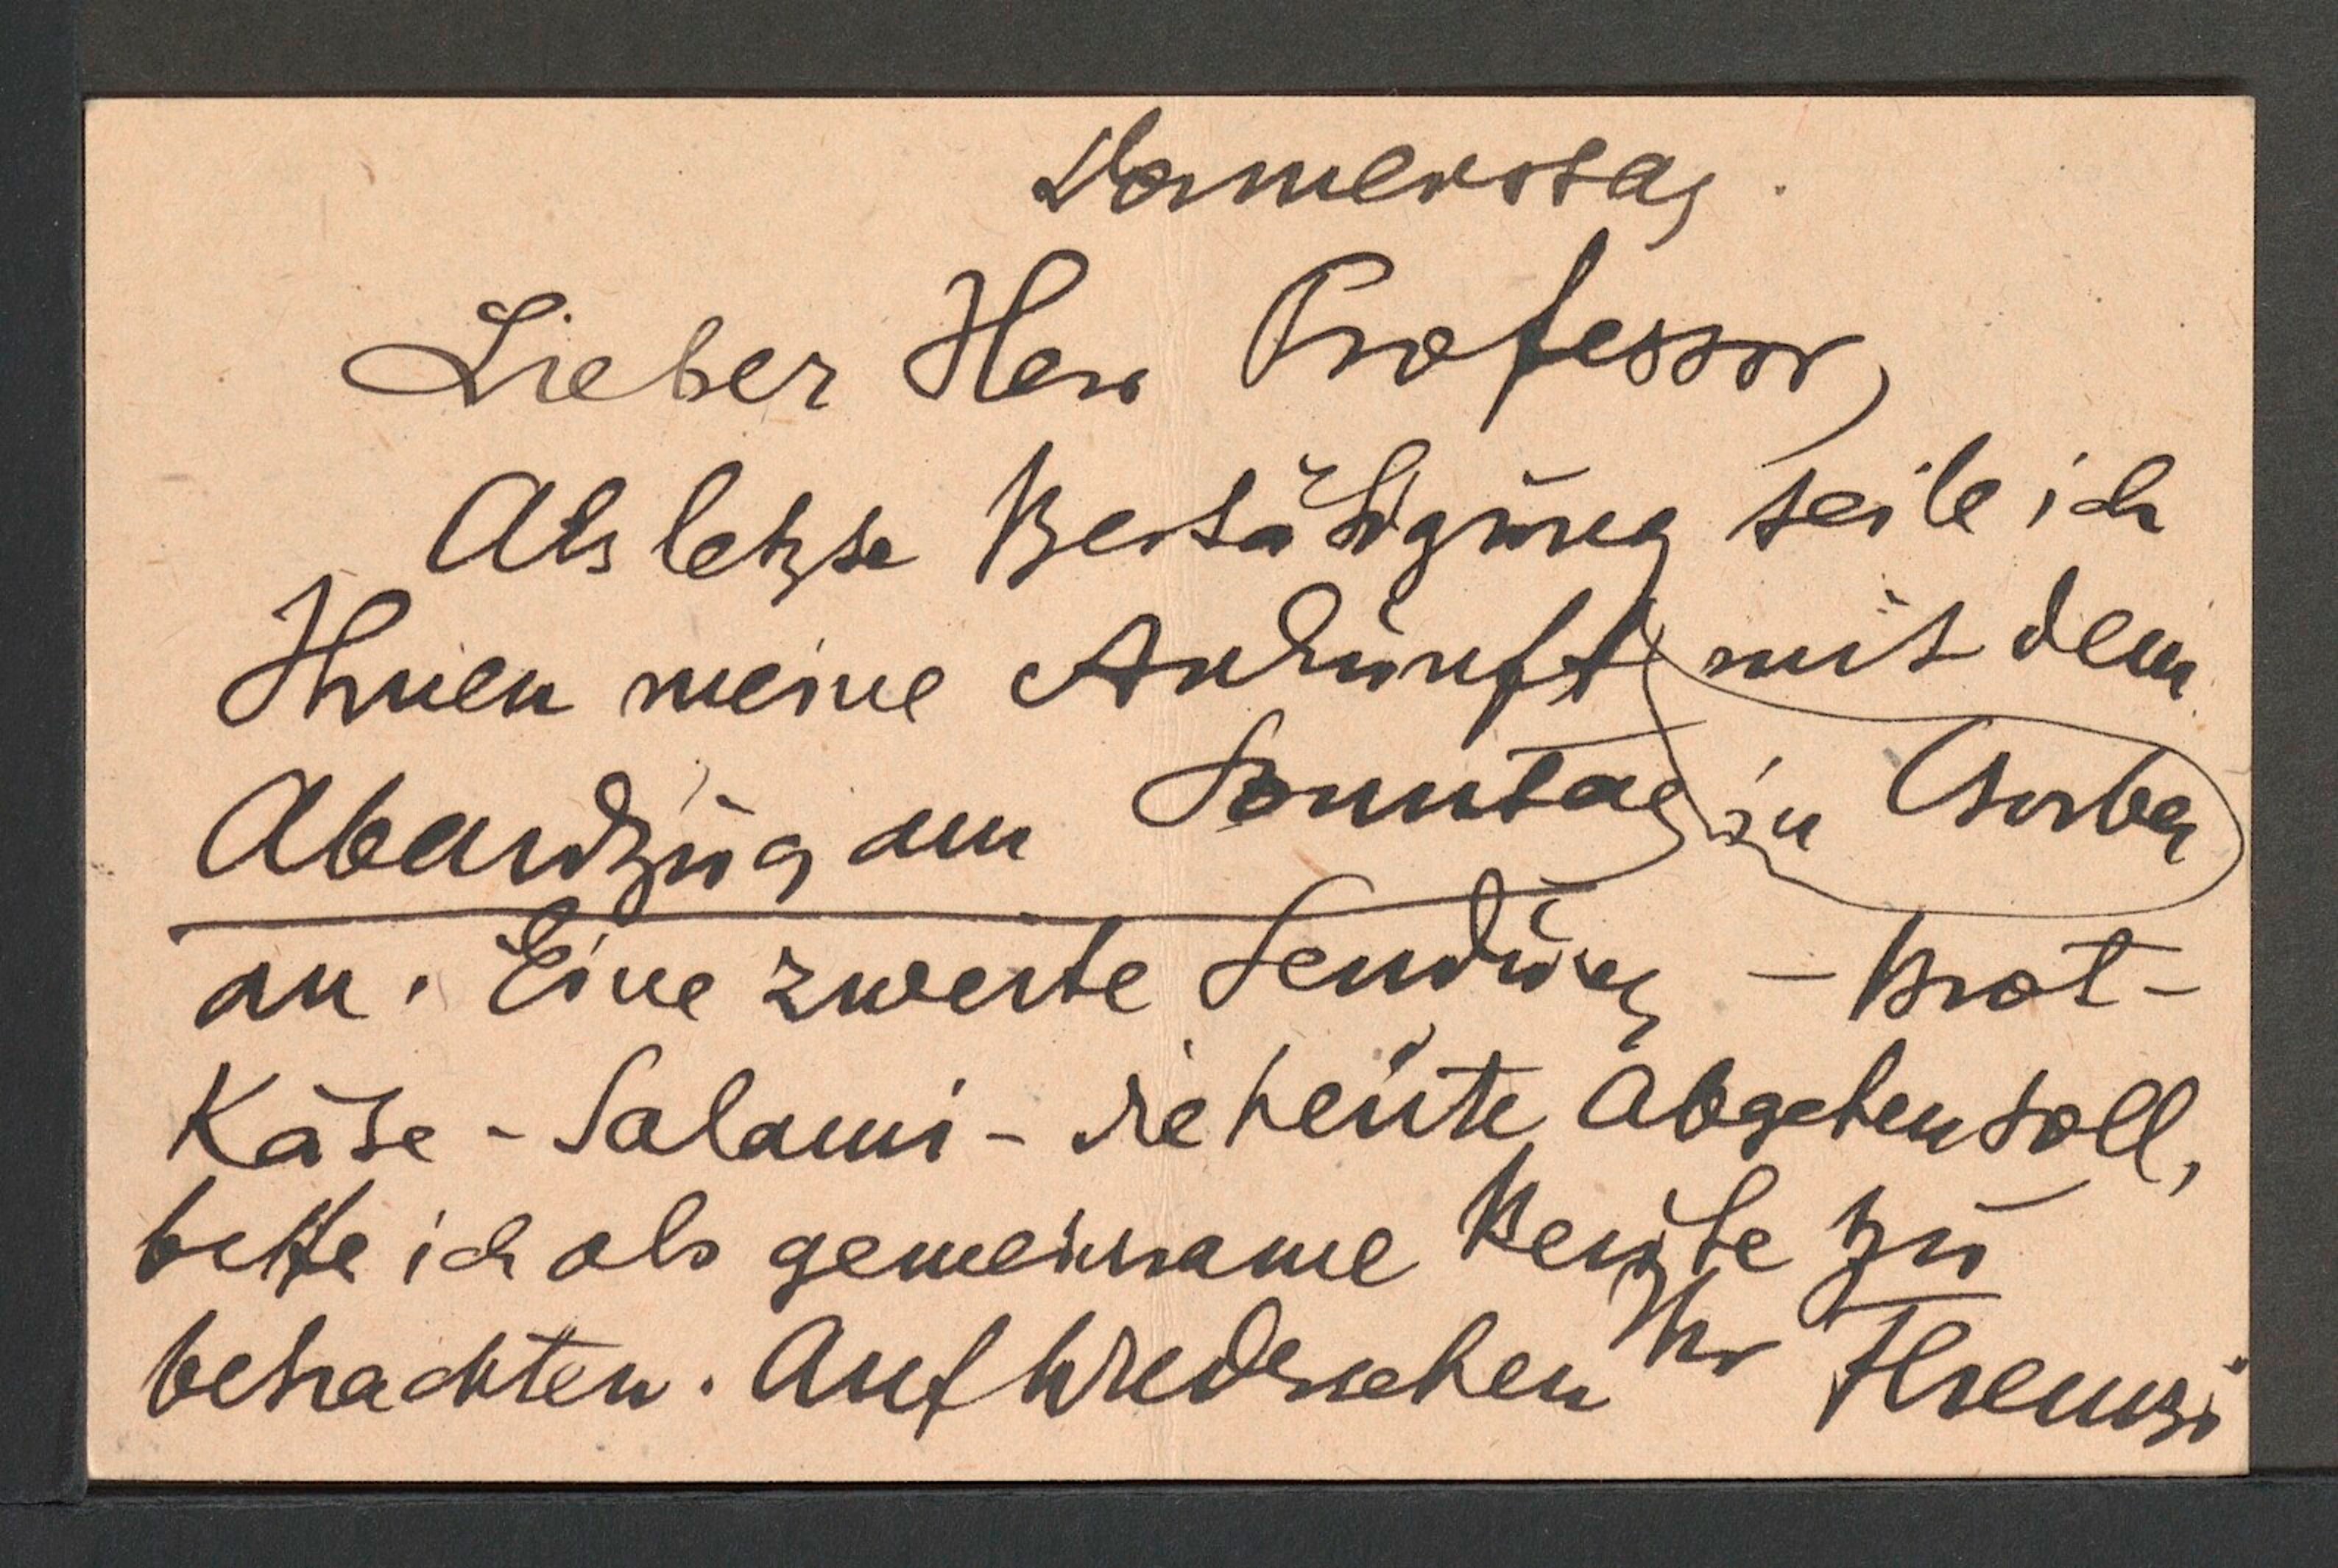 Donnerstag.
Lieber Herr Professor,
Als letzte Bestätigung teile ich
Ihnen meine Ankunft mit dem
Abendzug am Sonntag in Csorba
an. Eine zweite Sendung – Brot –
Käse – Salami – die heute abgehen soll,
bitte ich als gemeinsame Beute zu
betrachten. Auf Wiedersehen Ihr